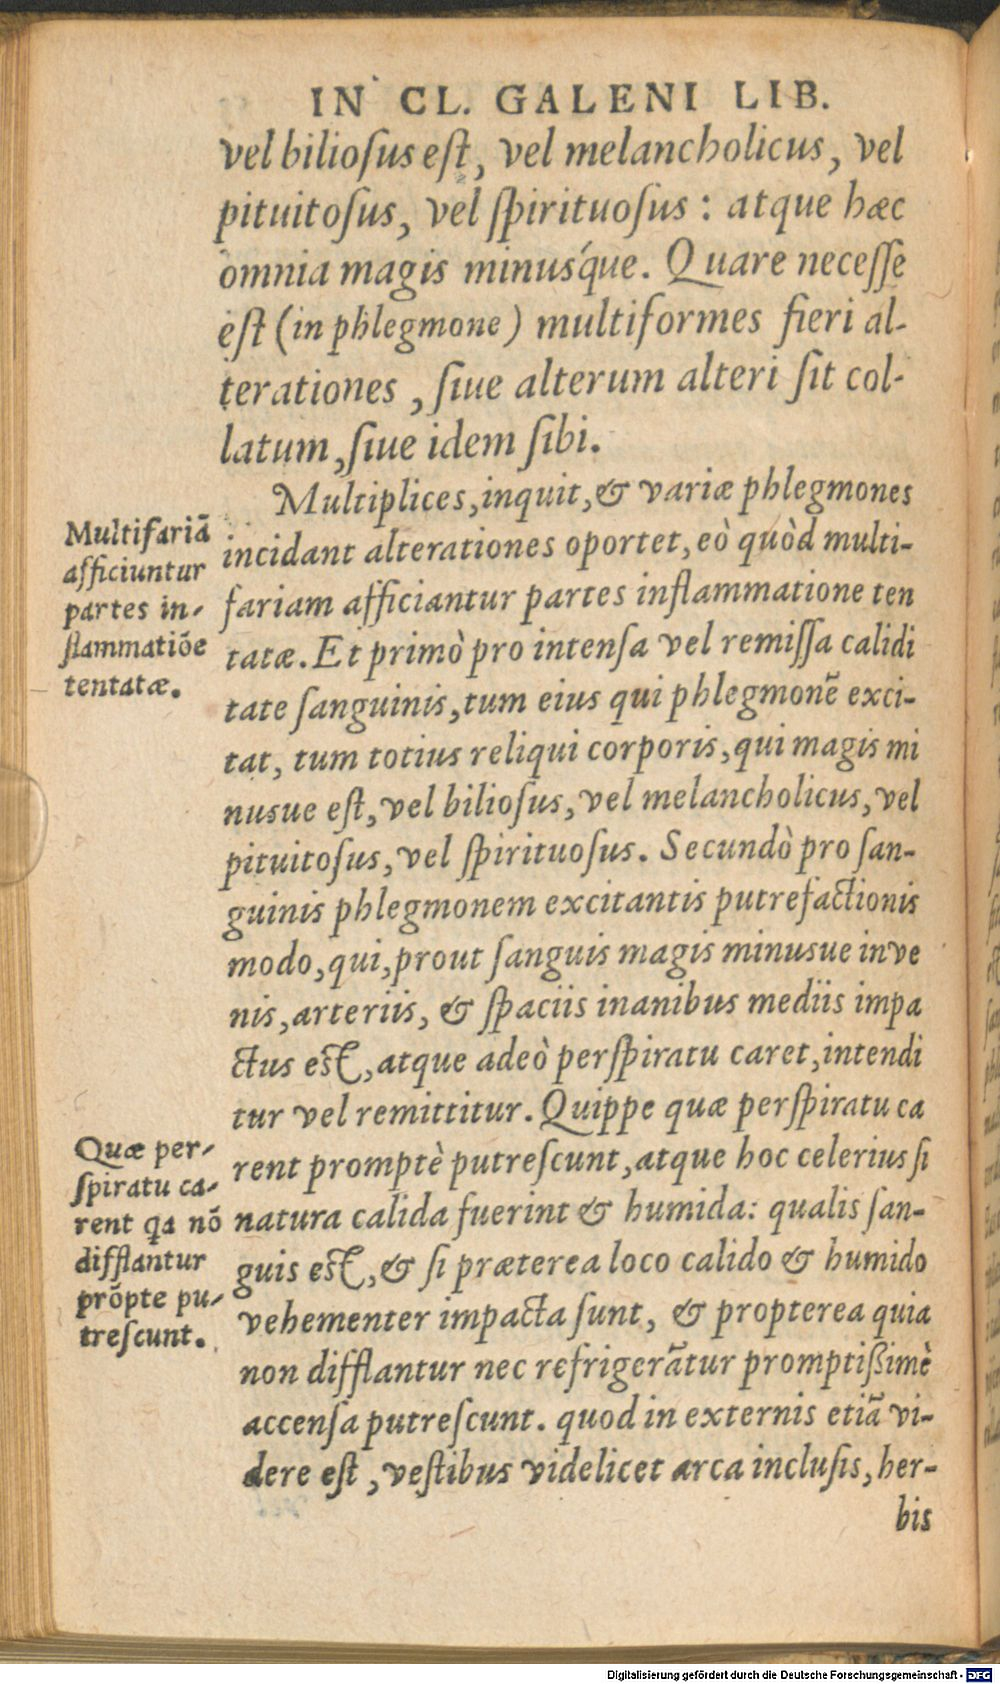 IN CL. GALENI LIB.
vel bilioſus eſt, vel melancholicus, vel
pituitoſus, vel ſpirituoſus : atque hæc
omnia magis minuśque. Quare neceſſe
eſt (in phlegmone) multiformes fieri al-
terationes, ſiue alterum alteri ſit col-
latum, ſiue idem ſibi.
Multiplices, inquit, & variæ phlegmones
incidant alterationes oportet, eò quòd multi-
fariam afficiantur partes inflammatione ten
tatæ. Et primò pro intenſa vel remiſſa calidi
tate ſanguinis, tum eius qui phlegmonẽ exci-
tat, tum totius reliqui corporis, qui magis mi
nusue eſt, vel bilioſus, vel melancholicus, vel
pituitoſus, vel ſpirituoſus. Secundò pro ſan-
guinis phlegmonem excitantis putrefactionis
modo, qui, prout ſanguis magis minusue in ve
nis, arteriis, & ſpaciis inanibus mediis impa
ctus est, atque adeò perſpiratu caret, intendi
tur vel remittitur. Quippe quæ perſpiratu ca
rent promptè putreſcunt, atque hoc celerius ſi
natura calida fuerint & humida: qualis ſan-
guis est, & ſi præterea loco calido & humido
vehementer impacta ſunt, & propterea quia
non difflantur nec refrigerãtur promptißimè
accenſa putreſcunt. quod in externis etiã vi-
dere eſt, veſtibus videlicet arca incluſis, her-
bis
Multifariã
afficiuntur
partes in-
flammatiõe
tentatæ.
Quæ per-
ſpiratu ca-
rent qa nõ
difflantur
prõpte pu-
treſcunt.
Digitalisierung gefördert durch die Deutsche Forschungsgemeinschaft - DFG